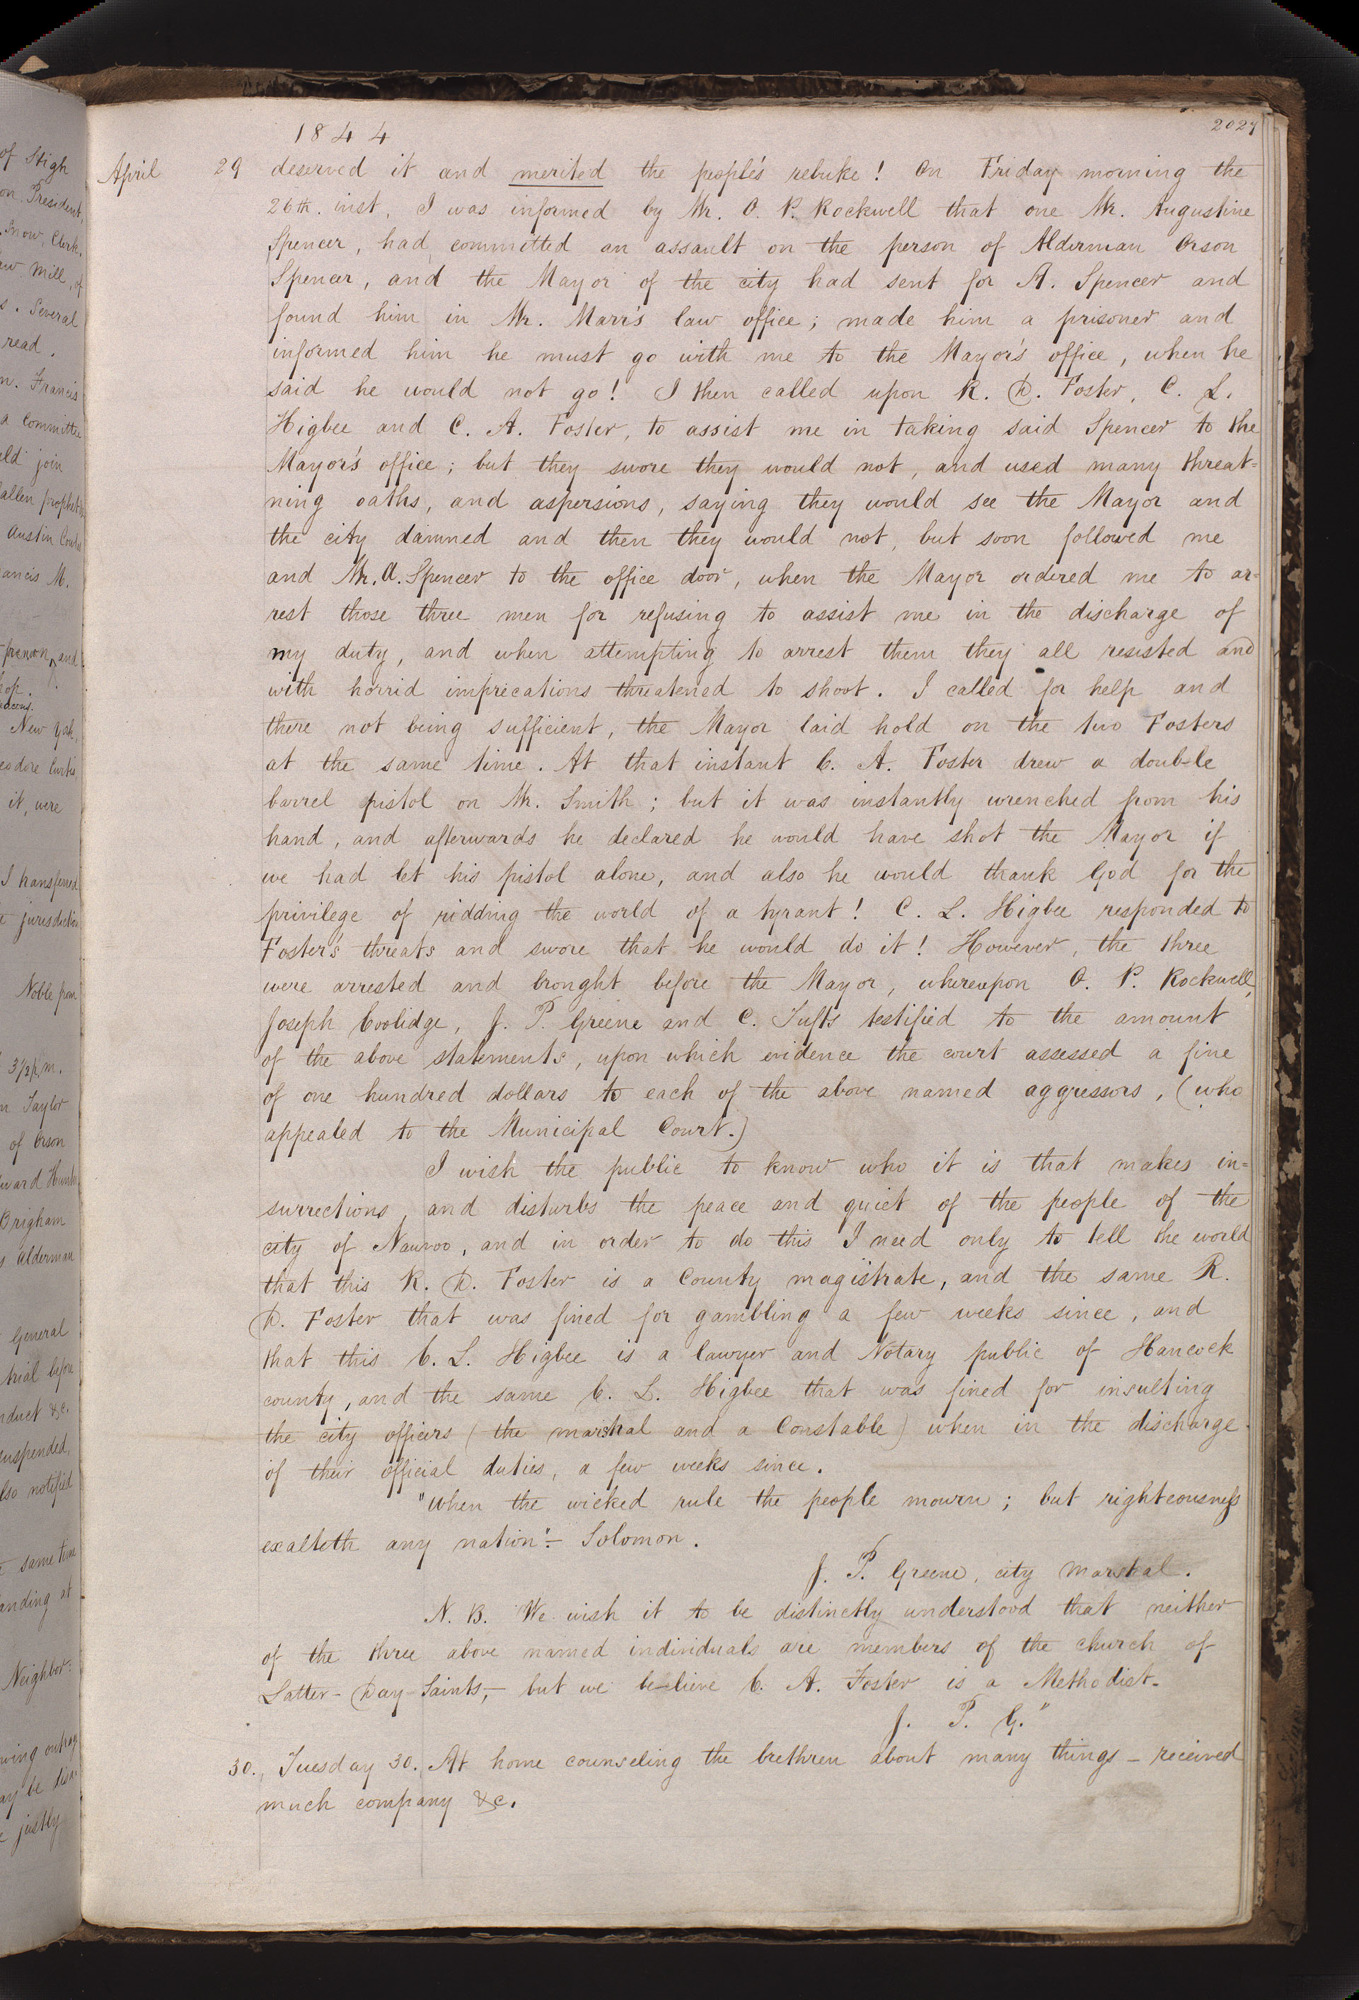 1844
2027
April 29 deserved it and merited the people's rebuke! On Friday morning the
26th. inst, I was informed by Mr. O. P. Rockwell that one Mr. Augustine
Spencer, had committed an assault on the person of Alderman Orson
Spencer, and the Mayor of the city had sent for A. Spencer and
found him in Mr. Marr's law office; made him a prisoner and
informed him he must go with me to the Mayor's office, when he
said he would not go! I then called upon R. D. Foster, C. L.
Higbee and C. A. Foster, to assist me in taking said Spencer to the
Mayor's office; but they swore they would not, and used many threat=
ning oaths, and aspersions, saying they would see the Mayor and
the city damned and then they would not, but soon followed me
and Mr. A. Spencer to the office door, when the Mayor ordered me to ar=
rest those three men for refusing to assist me in the discharge of
my duty, and when attempting to arrest them they all resisted and
with horrid imprecations threatened to shoot. I called for help and
there not being sufficient, the Mayor laid hold on the two Fosters
at the same time. At that instant C. A. Foster drew a double
barrel pistol on Mr. Smith; but it was instantly wrenched from his
hand, and afterwards he declared he would have shot the Mayor if
we had let his pistol alone, and also he would thank God for the
privilege of ridding the world of a tyrant! C. L. Higbee responded to
Foster's threats and swore that he would do it! However, the three
were arrested and brought before the Mayor, whereupon O. P. Rockwell,
Joseph Coolidge, J. P. Greene and C. Tufts testified to the amount
of the above statements, upon which evidence the court assessed a fine
of one hundred dollars to each of the above named aggressors, (who
appealed to the Municipal Court.)
I wish the public to know who it is that makes in=
surrections, and disturbs the peace and quiet of the people of the
city of Nauvoo, and in order to do this I need only to tell the world
that this R. D. Foster is a County magistrate, and the same R.
D. Foster that was fined for gambling a few weeks since, and
that this C. L. Higbee is a lawyer and Notary public of Hancock
county, and the same C. L. Higbee that was fined for insulting
the city officers (the marshal and a Constable) when in the discharge
of their official duties, a few weeks since.
"When the wicked rule the people mourn; but righteousness
exalteth any nation".- Solomon.
J. P. Greene, city Marshal.
N. B. We wish it to be distinctly understood that neither
of the three above named individuals are members of the church of
Latter-Day-Saints,- but we believe C. A. Foster is a Methodist-
J. P. G."
30. Tuesday 30. At home counseling the brethren about many things - received
much company &c.